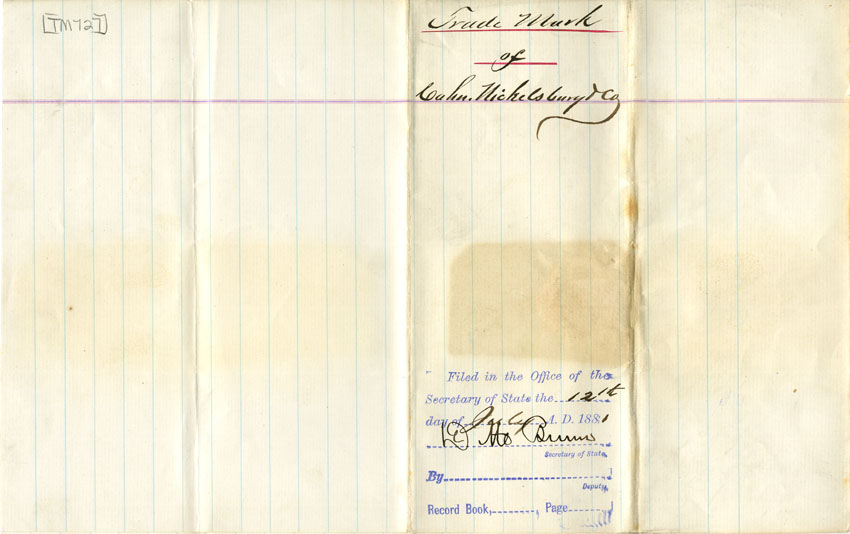 [TM727]
Trade Mark
of
Cahn. Nickelsburg & Co
Filed in the Office of the
Secretary of State the 12th
day of July A. D. 1881
Secretary of State.
By
Deputy.
Record Book, , Page